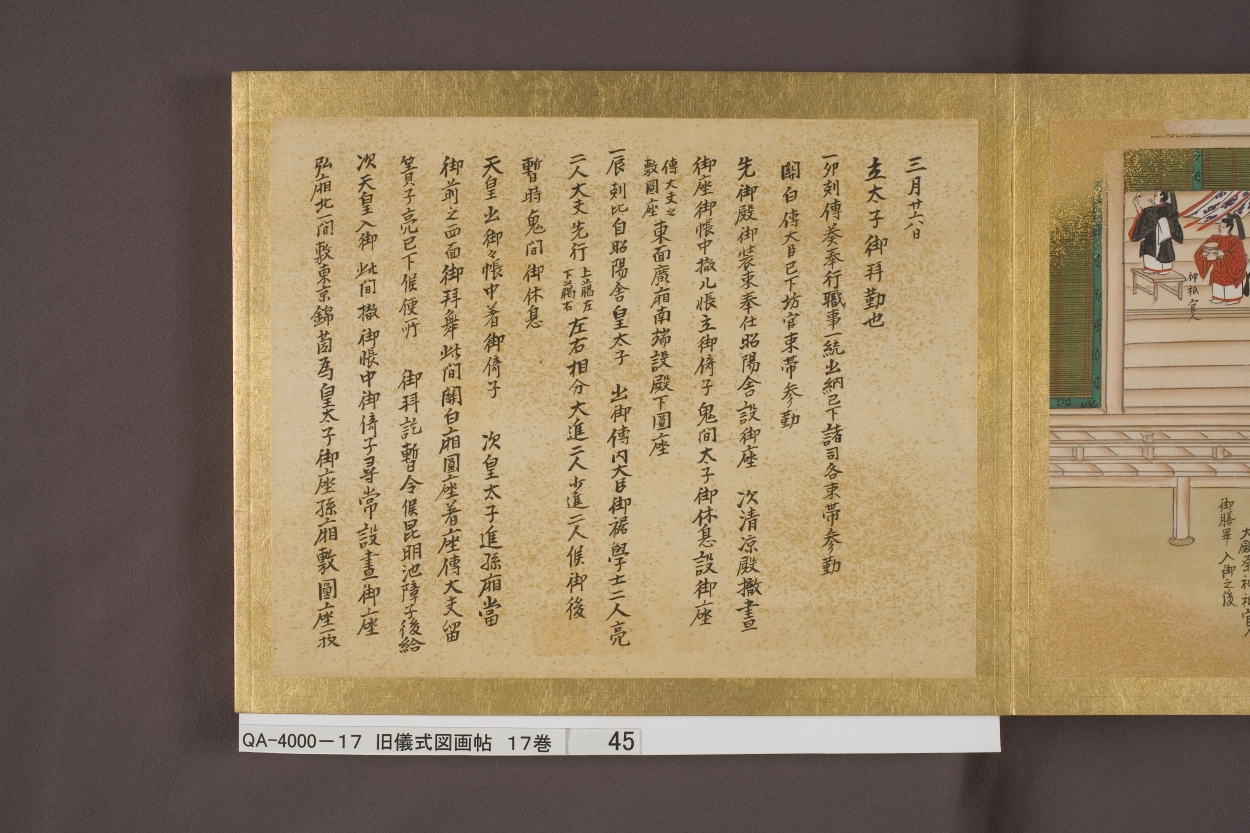 三月廿六日
立太子御拜勤也
一卯刻傳奏奉行職事一統出納已下諸司各束帶参勤
關白傳大臣已下坊官束帶参勤
先御殿御裝束奉仕昭陽舎設御座 次清凉殿撤晝
御座御帳中撤几帳立御倚子鬼間太子御休息設御座
傳大夫之
敷圓座
東面廣廂南端設殿下圓座
一辰刻比自昭陽舎皇太子 出御傳内大臣御裾學士二人亮
二人大夫先行
上﨟左
下﨟右
左右相分大進二人少進二人候御後
暫時鬼間御休息
天皇出御々帳中着御倚子 次皇太子進孫廂當
御前之西面御拜舞此間關白廂圓座着座傳大夫留
簀子亮已下候便所 御拜訖暫令候昆明池障子後給
次天皇入御 此間撤御帳中御倚子尋常設晝御座
弘廂北一間敷東京錦茵爲皇太子御座孫廂敷圓座一枚
神祇官人
御膳畢入御之後
QA-4000-17 旧儀式図画帖 17巻 45